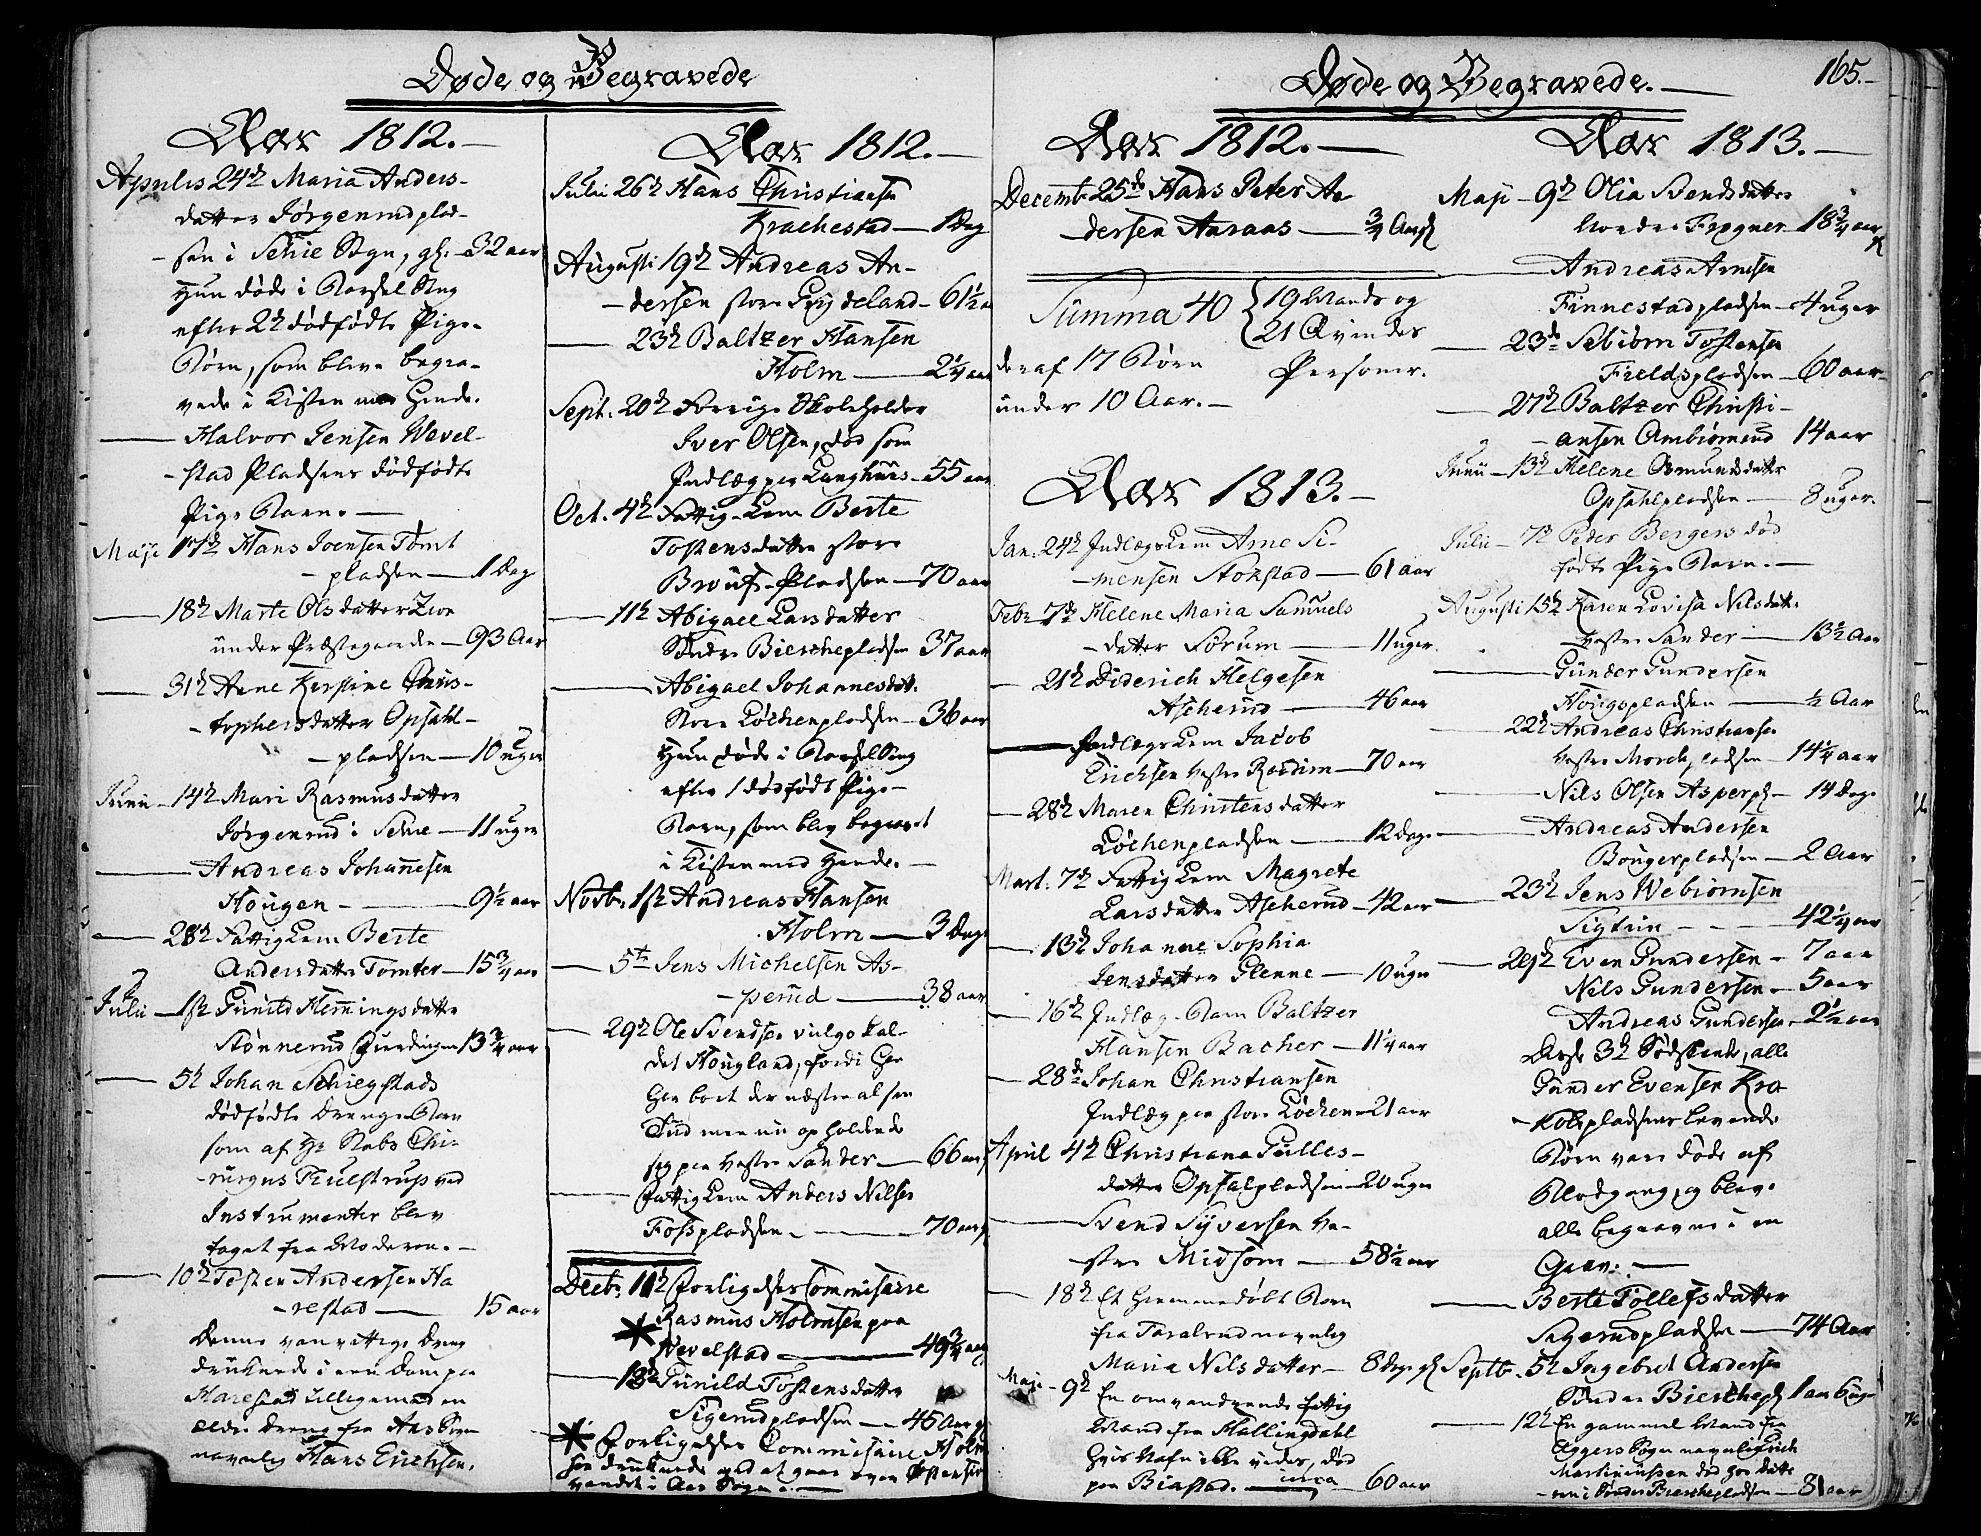 Døde og Begravede
Aar 1812.
Aprilis 24de Maria Anders-
datter Jørgenrudplad-
sen i Schie Sogn, gl. 32 aar
Hun døde i Barsel Sng
efter 2de dødfødte Pige-
Børn, som bleve begra-
vede i Kisten med Hende.
Halvor Jensen Wevel-
stad Pladsens dødfødte
Pige Barn.
Maji 17de Hans Joensen Tomt
pladsen 1 Dag
18de Marte Olsdatter
under Præstegaarden 93 Aar
31de Anne Kirstine Chris-
tophersdatter Opsahl-
pladsen 10 uger
Junii 14de Mari Rasmusdatter
Jørgenrud i Schie 11 uger
Andreas Johannesen
Hougen 9½ aar
28de Fattig Lem Berte
Andersdatter Tomter 15¾ aar
Julii 1ste Gunild Hemmingsdatter
Stønnerud 13¾ aar
5te Johan Schiegstads
dødfødte Drenge Barn
som af Hr Stabs Chi-
rurgus Thulstrup ved
Instrumenter blev
taget fra Moderen.
10de Tosten Andersen Ha
restad 15 aar
Denne vanvittige Dreng
druknede i een Dam paa
Harestad tilligemed en
ældre Dreng fra Aas Sogn
navnlig Hans Erichsen.
Aar 1812.
Julii 26de Hans Christiansen
Krachestad 1 Dag
Augusti 19de Andreas An-
dersen store Grydeland 61½ a
23de Baltzer Hansen
Holm 2¼ aar
Sept. 20de Forrige Skoleholder
Iver Olsen, død som
Indlæg paa Langhuus 55 aar
Oct. 4de Fattig-Lem Berte
Tostensdatter store
Bruus-Pladsen 70 aar
11te Abigael Larsdatter
Søndre Biercheplads 37 aar
Abigael Johannesdatt.
Store Løchenpladsen 36 aar
Hun døde i Barsel Sng
efter 1 dødfødt Pige-
Barn, som blev begravet
i Kisten med Hende.
Novbr. 1ste Andreas Hansen
Holm 3 Dage
5te Jens Michelsen As-
perud 38 aar
29de Ole Svendsen vulgo kal-
det Hougland, fordi Han
har boet der næsten al sin
Tid men nu opholdende
sig paa vestre Sander 66 aar
Fattig Lem Anders Nilsen
Fosspladsen 70 aar
Decbr. 11te Forligelses Commisaire
* Rasmus Holmsen paa
Wevelstad 49¾ aar
13de Gunild Tostensdatter
Sigerudpladsen 45 Aar
* Forligelses Commissaire Holm
sen druknede ved at gaae over Østensiøe
vandet i Aas Sogn.
Døde og Begravede.
165.
Aar 1812.
Decemb. 25de Hans Peter An
dersen Aaraas ¾ Aar
Summa 40 { 19 Mands og
21 Qvindes
Personer.
deraf 17 Børn
under 10 Aar.
Aar 1813.
Jan. 24de Indlægs Lem Arne Si-
mensen Stokstad 61 aar
Febr. 7de Helene Maria Samuels
datter Sørum 11 uger
21de Diderich Helgesen
Ascherud 46 aar
Indlægs Lem Jacob
Erichsen vestre Raudim 70 aar
28de Maren Christensdatter
Løchenpladsen 12 Dage
Mart. 7de Fattig Lem Magrete
Larsdatter Ascherud 42 aar
13de Johanne Sophia
Jensdatter Glenne 10 uger
16de Indlæg-Barn Baltzer
Hansen Bacher 11¼ aar
28de Johan Christiansen
Indlæg paa store Løchen 21 aar
April 4de Christiana Gulles-
datter Opsalpladsen 20 uger
Svend Syversen ve-
stre Midsom 58½ aar
18de Et hiemmedøbt Barn
fra Taralrud navnlig
Maria Nilsdatter 8 Dage gl
Maji 9de En omvandrende fattig
Mand fra Hallingdahl
Hvis Nafn ikke vides, død
paa Biastad. circa 60 aar
Aar 1813.
Maji 9de Olia Bendsdatter
Nordre Frogner 18¾ aar
Andreas Arnesen
Finnestadpladsen 4 uger
23de Sebiörn Tostensen
Fieldspladsen 60 aar
27de Baltzer Christi-
ansen Ambiörnrud 14 aar
Junii 13de Helene Osmundsdatter
Opsahlpladsen 8 uger
Julii 7de Peder Bergers død
fødte Pige Barn.
Augusti 15de Karen Lovisa Nilsdatt.
vestre Sander 13½ Aar
Gunder Gundersen
Hougspladsen ½ Aar
22de Andreas Christiansen
vestre Morchpladsen 14¼ aar
Nils Olsen Asperpl 14 Dage
Andreas Andersen
Bougerpladsen 2 Aar
23de Jens Webiörnsen
Sigtun 42¼ aar
29de Even Gundersen 7 aar
Nils Gundersen 5 aar
Andreas Gundersen 2½ aar
Disse 3de Sødskende, alle
Gunder Evensen Kra-
kobspladsens levende
Børn vare døde af
Blodgang, og bleve
alle begravne i en
Grav.
Berte Tollefsdatter
Sigerudpladsen 74 Aar
Septbr. 5te Ingebret Andersen
Søndre Bierchepl 1 aar 6 uger
12te En gammel Mand fra
Aggers Sogn navnlig Erich
Martinussen død hos Datte
ren i Søndre Biercheplads 81 aar